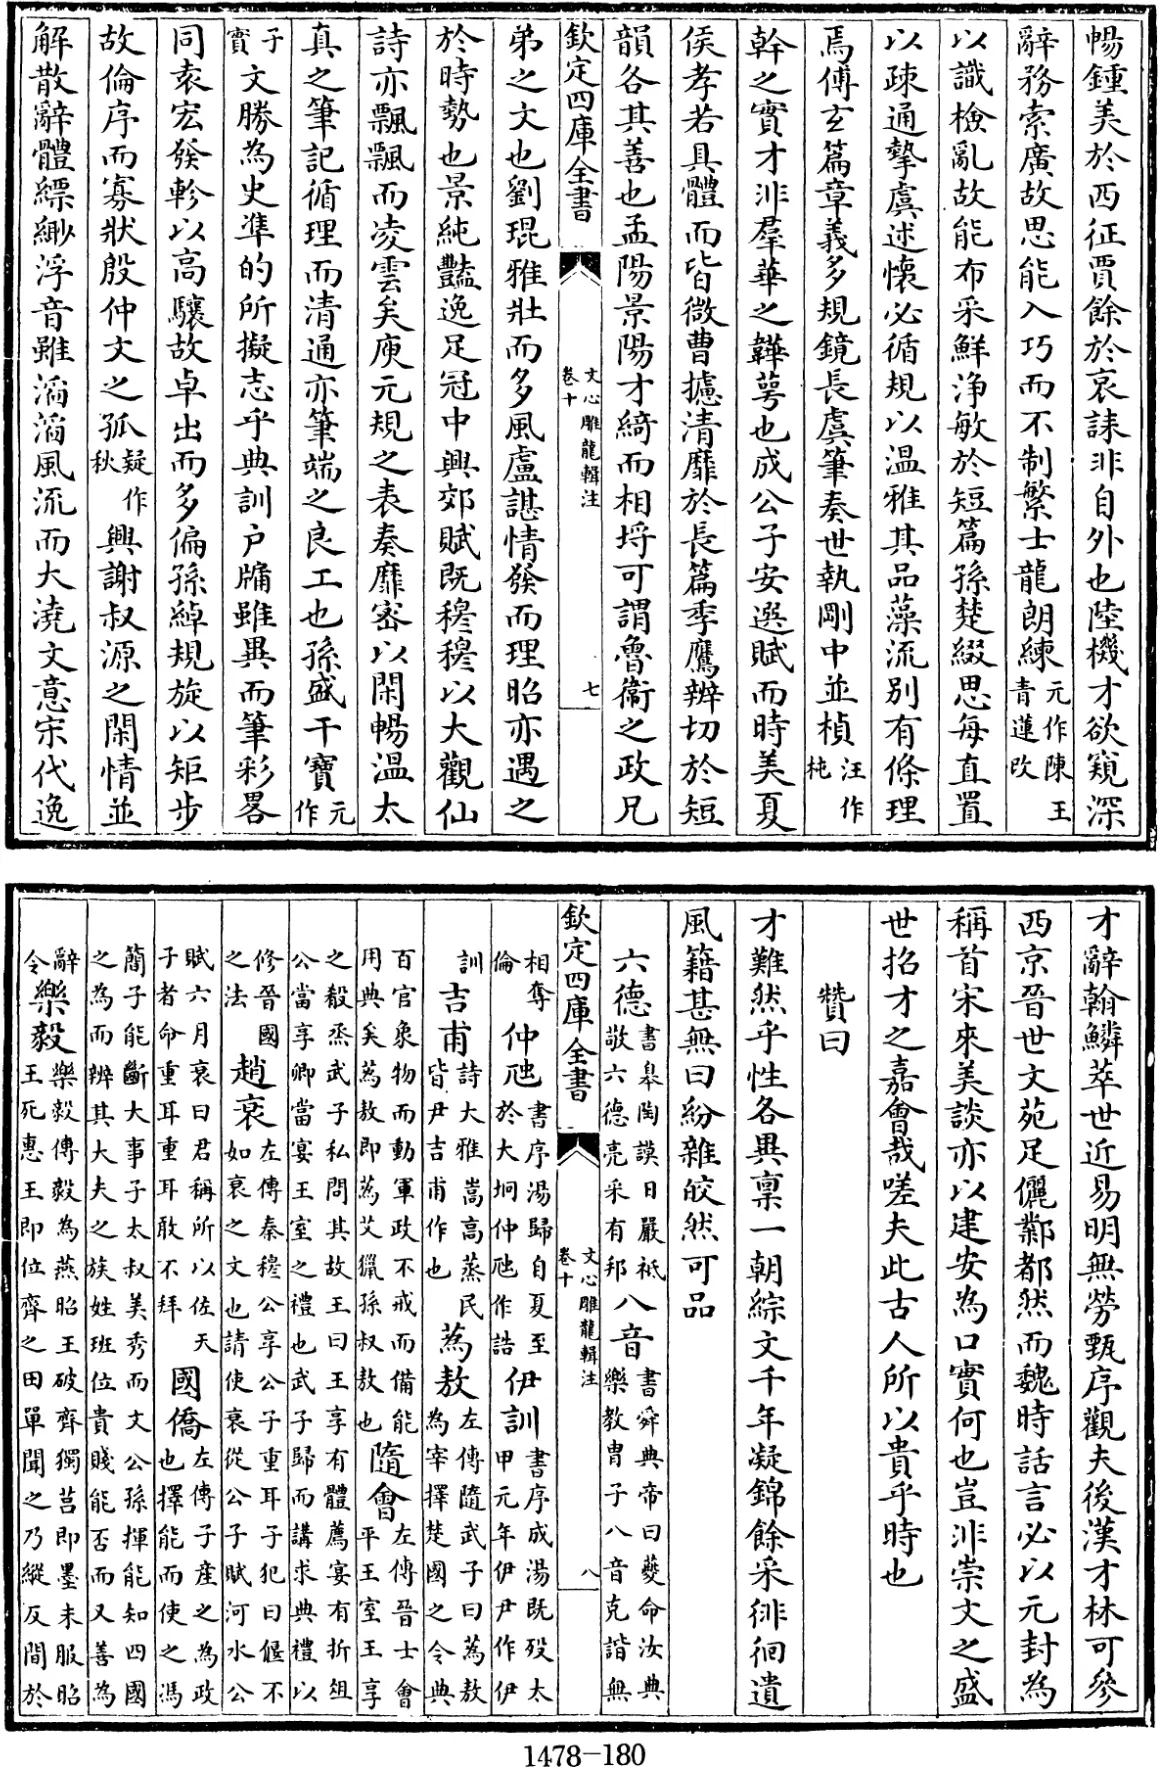 暢鍾美於西征賈餘於哀誄非自外也陸機才欲窺深
辭務索廣故思能入巧而不制繁士龍朗練元作陳王青蓮改
以識檢亂故能布采鮮淨敏於短篇孫楚綴思每直置
以疎通摯虞述懷必循規以温雅其品藻流别有條理
焉傅玄篇章義多規鏡長虞筆奏世執剛中並楨汪作杶
幹之實才非羣華之韡萼也成公子安選賦而時美夏
侯孝若具體而皆微曹攄清靡於長篇季鷹辨切於短
韻各其善也孟陽景陽才綺而相埒可謂魯衛之政兄
欽定四庫全書 文心雕龍輯注 卷十 七
弟之文也劉琨雅壯而多風盧諶情發而理昭亦遇之
於時勢也景純豔逸足冠中興郊賦既穆穆以大觀仙
詩亦飄飄而凌雲矣庾元規之表奏靡密以閑暢温太
真之筆記循理而清通亦筆端之良工也孫盛干寳元作
子實文勝為史準的所擬志乎典訓户牖雖異而筆彩畧
同袁宏發軫以高驤故卓出而多偏孫綽規旋以矩步
故倫序而寡狀殷仲文之孤疑作秋興謝叔源之閑情並
解散辭體縹緲浮音雖滔滔風流而大澆文意宋代逸
才辭翰鱗萃世近易明無勞甄序觀夫後漢才林可參
西京晉世文苑足儷鄴都然而魏時話言必以元封為
稱首宋來美談亦以建安為口實何也豈非崇文之盛
世招才之嘉會哉嗟夫此古人所以貴乎時也
贊曰
才難然乎性各異禀一朝綜文千年凝錦餘采徘徊遺
風籍甚無曰紛雜皎然可品
六德書皋陶謨日嚴祗敬六德亮采有邦八音書舜典帝曰夔命汝典樂教胄子八音克諧無
欽定四庫全書 文心雕龍輯注 卷十 八
相奪倫仲虺書序湯歸自夏至於大坰仲虺作誥伊訓書序成湯既殁太甲元年伊尹作伊
訓吉甫詩大雅嵩高蒸民皆尹吉甫作也蒍敖左傳隨武子曰蒍敖為宰擇楚國之令典
百官象物而動軍政不戒而備能用典矣蒍敖即蒍艾獵孫叔敖也隨會左傳晉士會平王室王享
之殽烝武子私問其故王曰王享有體薦宴有折俎公當享卿當宴王室之禮也武子歸而講求典禮以
修晉國之法趙衰左傳秦穆公享公子重耳子犯曰偃不如衰之文也請使衰從公子賦河水公
賦六月衰曰君稱所以佐天子者命重耳重耳敢不拜國僑左傳子産之為政也擇能而使之馮
簡子能斷大事子太叔美秀而文公孫揮能知四國之為而辨其大夫之族姓班位貴賤能否而又善為
辭令樂毅樂毅傳毅為燕昭王破齊獨莒即墨未服昭王死惠王即位齊之田單聞之乃縱反間於
1478-180